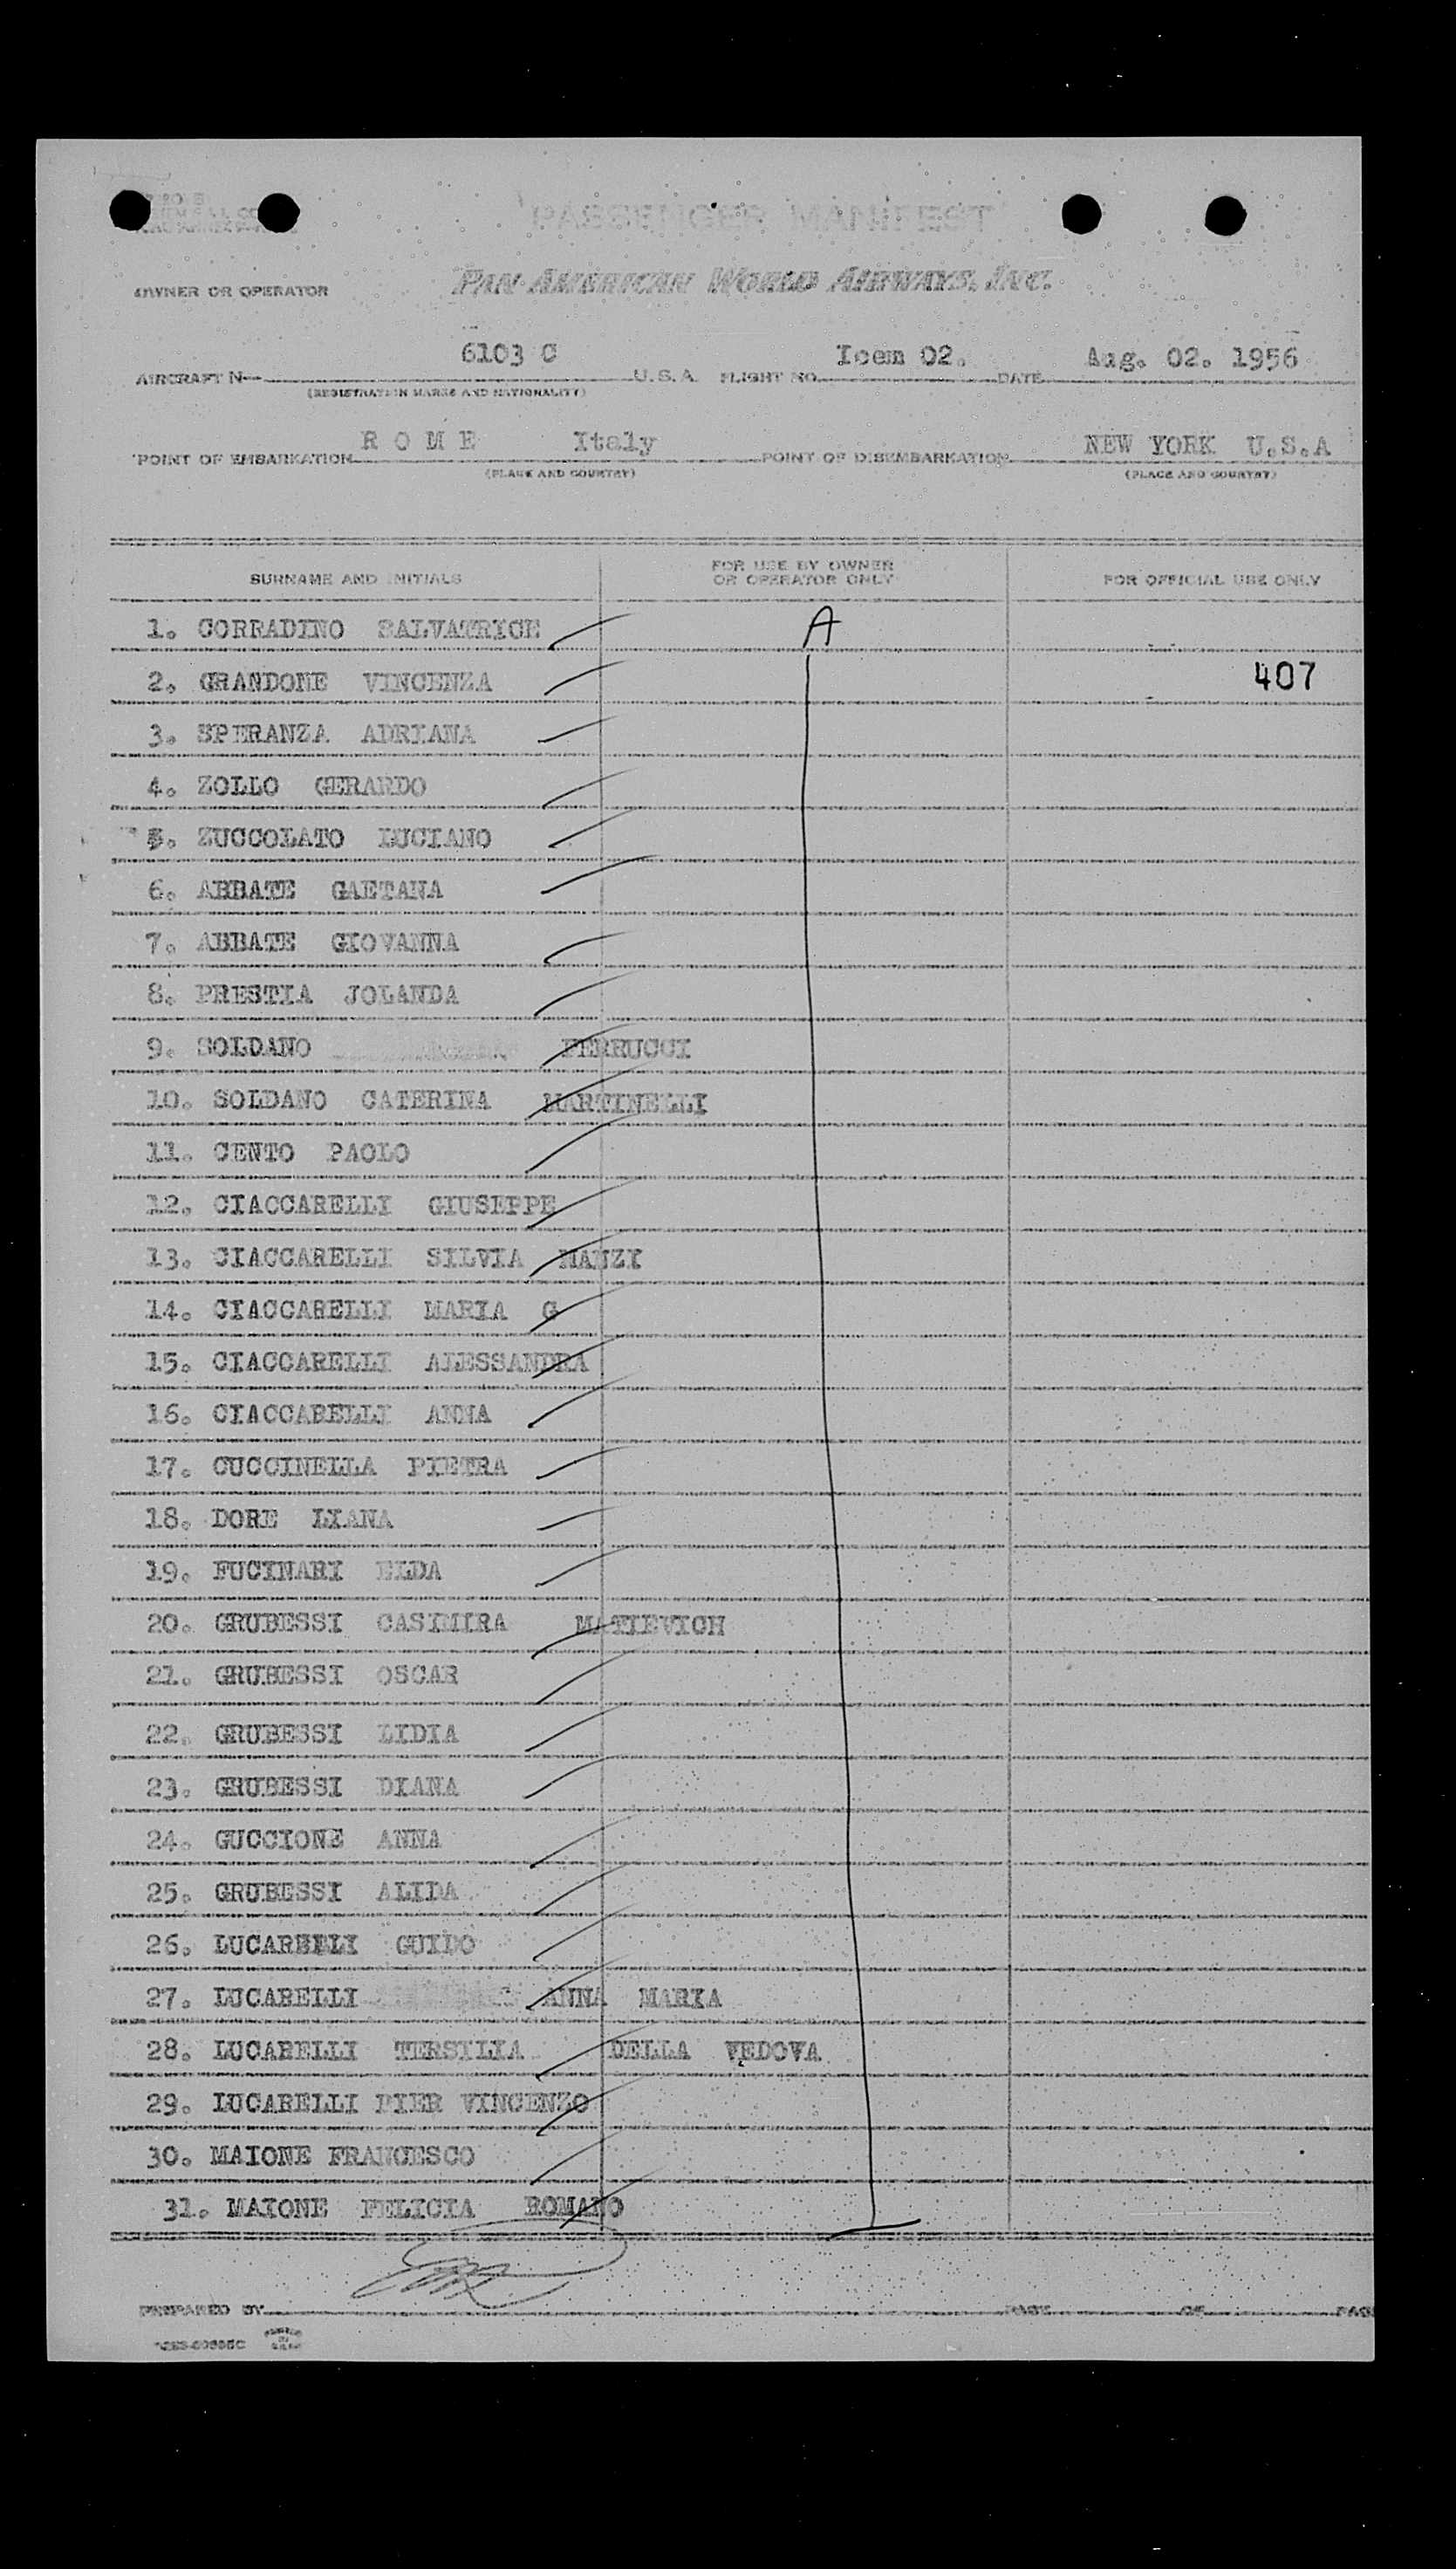 PASSENGER MANIFEST
OWNER OR OPERATOR PAN AMERICAN WORLD AIRWAYS, INC.
AIRCRAFT N— 6103 C U.S.A. FLIGHT NO. Icem 02. DATE Aug. 02. 1956
(REGISTRATION MARKS AND NATIONALITY)
POINT OF EMBARKATION R O M E Italy POINT OF DISEMBARKATION NEW YORK U.S.A
(PLACE AND COUNTRY) (PLACE AND COUNTRY)
SURNAME AND INITIALS FOR USE BY OWNER OR OPERATOR ONLY FOR OFFICIAL USE ONLY
1. CORRADINO SALVATRICE A
2. GRANDONE VINCENZA 407
3. SPERANZA ADRIANA
4. ZOLLO GERARDO
5. ZUCCOLATO LUCIANO
6. ABBATE GAETANA
7. ABBATE GIOVANNA
8. PRESTIA JOLANDA
9. SOLDANO FERRUCCI
10. SOLDANO CATERINA MARTINELLI
11. CENTO PAOLO
12. CIACCARELLI GIUSEPPE
13. CIACCARELLI SILVIA MANZI
14. CIACCARELLI MARIA G
15. CIACCARELLI ALESSANDRA
16. CIACCARELLI ANNA
17. CUCCINELLA PIETRA
18. DORE LIANA
19. FUCINARI ELDA
20. GRUBESSI CASIMIRA MATIEVICH
21. GRUBESSI OSCAR
22. GRUBESSI LIDIA
23. GRUBESSI DIANA
24. GUCCIONE ANNA
25. GRUBESSI ALIDA
26. LUCARELLI GUIDO
27. LUCARELLI ANNA MARIA
28. LUCARELLI TERSILIA DELLA VEDOVA
29. LUCARELLI PIER VINCENZO
30. MAIONE FRANCESCO
31. MAIONE FELICIA ROMANO
PREPARED BY PAGE OF PAG